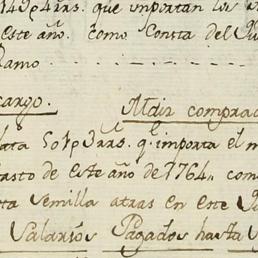 149p4rrs. que inportan los
este año. como Consta del
Ramo
cargo. Maiz comprad
lata 501p3rrs. q.e importa el m
Gasto de este año de 1764,, com
ta Semilla atras en este
Salarios Pagados hasta